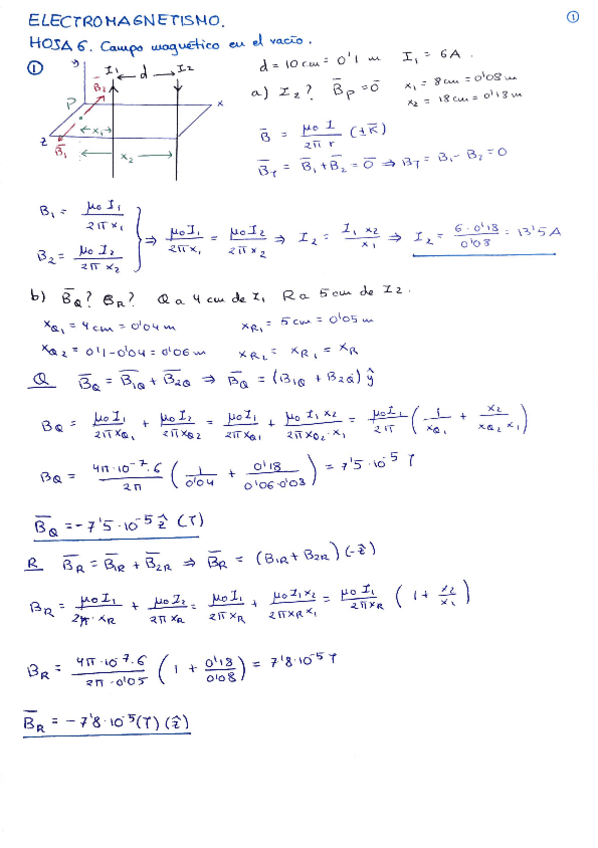 ELECTROMAGNETISMO.
1
HOJA 6. Campo magnético en el vacío.
1
y
I₁
d
I₂
B̄₂
P
x
x₁
z
B̄₁
x₂
d = 10 cm = 0'1 m I₁ = 6A.
a) I₂? B̄p = 0̄ x₁ = 8cm = 0'08 m
x₂ = 18cm = 0'18 m
B̄ = μ₀ I / 2π r (±k̄)
B̄_T = B̄₁ + B̄₂ = 0̄ ⇒ B_T = B₁ - B₂ = 0
B₁ = μ₀ I₁ / 2π x₁
B₂ = μ₀ I₂ / 2π x₂
⇒ μ₀ I₁ / 2π x₁ = μ₀ I₂ / 2π x₂ ⇒ I₂ = I₁ x₂ / x₁ ⇒ I₂ = 6·0'18 / 0'08 = 13'5 A
b) B̄Q? B̄R? Q a 4 cm de I₁ R a 5 cm de I₂.
xQ₁ = 4cm = 0'04 m xR₁ = 5cm = 0'05 m
xQ₂ = 0'1 - 0'04 = 0'06 m xR₂ = xR₁ = xR
Q B̄Q = B̄₁Q + B̄₂Q ⇒ B̄Q = (B₁Q + B₂Q) ŷ
BQ = μ₀ I₁ / 2π xQ₁ + μ₀ I₂ / 2π xQ₂ = μ₀ I₁ / 2π xQ₁ + μ₀ I₁ x₂ / 2π xQ₂ · x₁ = μ₀ I₁ / 2π (1 / xQ₁ + x₂ / xQ₂ x₁)
BQ = 4π·10⁻⁷·6 / 2π (1 / 0'04 + 0'18 / 0'06·0'08) = 7'5·10⁻⁵ T
B̄Q = -7'5·10⁻⁵ ẑ (T)
R B̄R = B̄₁R + B̄₂R ⇒ B̄R = (B₁R + B₂R) (-ẑ)
BR = μ₀ I₁ / 2π·xR + μ₀ I₂ / 2π xR = μ₀ I₁ / 2π xR + μ₀ I₁ x₂ / 2π xR x₁ = μ₀ I₁ / 2π xR (1 + x₂ / x₁)
BR = 4π·10⁻⁷·6 / 2π·0'05 (1 + 0'18 / 0'08) = 7'8·10⁻⁵ T
B̄R = -7'8·10⁻⁵ (T) (ẑ)